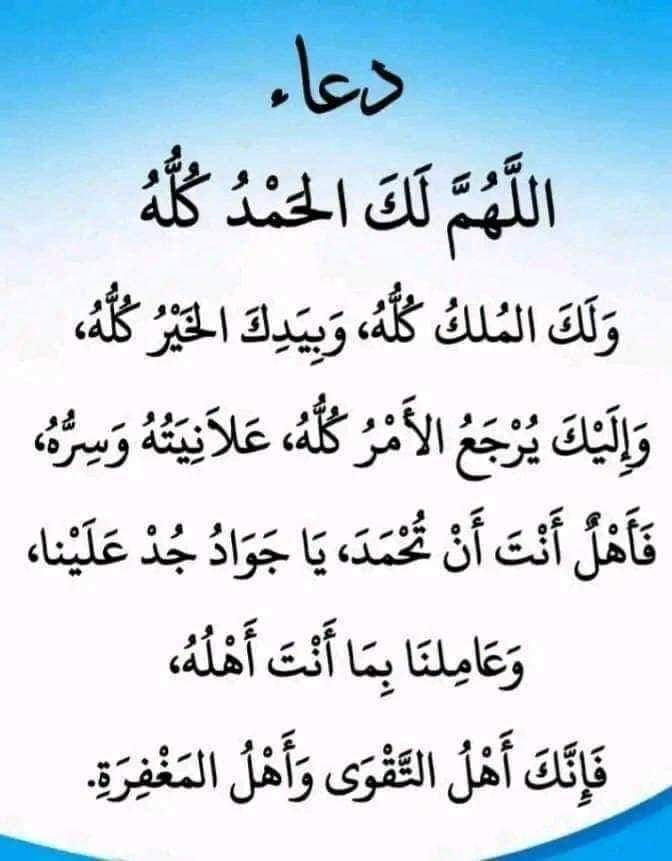 دعاء
اللَّهُمَّ لَكَ الحَمْدُ كُلُّهُ
وَلَكَ المُلكُ كُلُّهُ، وَبِيَدِكَ الخَيْرُ كُلُّهُ،
وَإِلَيْكَ يُرْجَعُ الأَمْرُ كُلُّهُ، عَلاَنِيَتُهُ وَسِرُّهُ،
فَأَهْلٌ أَنْتَ أَنْ تُحْمَدَ، يَا جَوَادُ جُدْ عَلَيْنا،
وَعَامِلنَا بِمَا أَنْتَ أَهْلُهُ،
فَإِنَّكَ أَهْلُ التَّقْوَى وَأَهْلُ المَغْفِرَةِ.